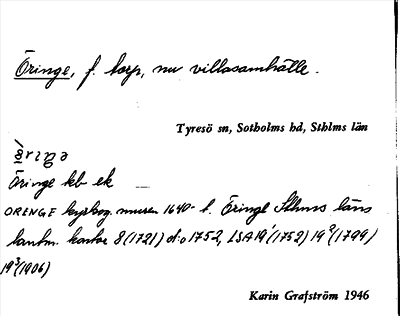 Öringe, f. torp, nu villasamhälle.
Tyresö sn, Sotholms hd, Sthlms län
Öringe kb ek
ORENGE kyrkog. museu 1640-t. Öringe Sthms läns
lantm. kontor 8 (1721) d:o 1752, LSA 19¹(1752) 19²(1799)
19³(1906)
Karin Grafström 1946